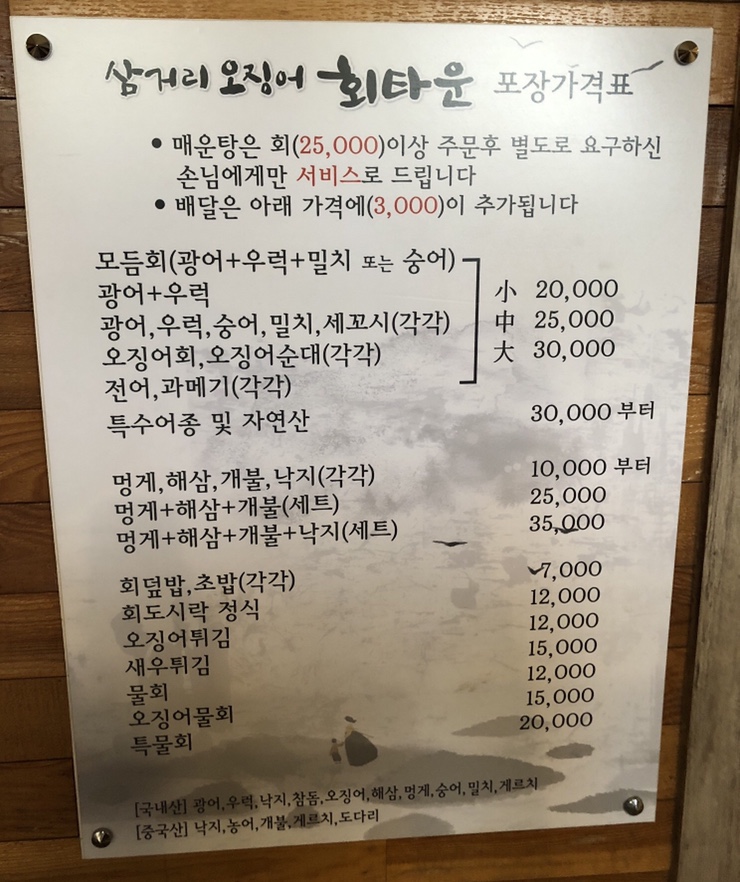 삼거리 오징어 회타운 포장가격표
• 매운탕은 회(25,000)이상 주문후 별도로 요구하신
손님에게만 서비스로 드립니다
• 배달은 아래 가격에(3,000)이 추가됩니다
모듬회(광어+우럭+밀치 또는 숭어)
광어+우럭 小 20,000
광어,우럭,숭어,밀치,세꼬시(각각) 中 25,000
오징어회,오징어순대(각각) 大 30,000
전어,과메기(각각)
특수어종 및 자연산 30,000 부터
멍게,해삼,개불,낙지(각각) 10,000 부터
멍게+해삼+개불(세트) 25,000
멍게+해삼+개불+낙지(세트) 35,000
회덮밥,초밥(각각) 7,000
회도시락 정식 12,000
오징어튀김 12,000
새우튀김 15,000
물회 12,000
오징어물회 15,000
특물회 20,000
[국내산] 광어,우럭,낙지,참돔,오징어,해삼,멍게,숭어,밀치,게르치
[중국산] 낙지,농어,개불,게르치,도다리